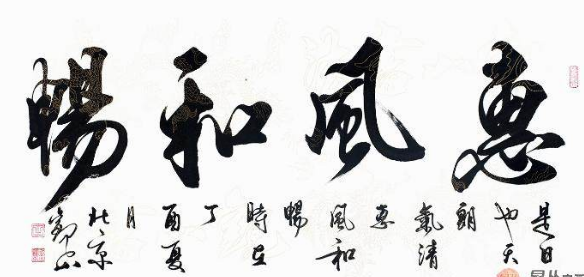 惠風和暢
是日
也天
朗
氣清
惠
風和
暢
時在
丁
酉夏
月
北京